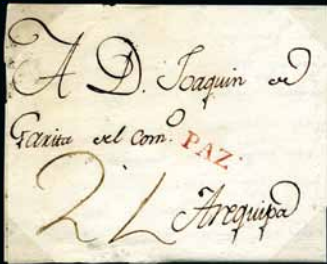 A D. Joaquin de
Garita del Com.º PAZ
2 L Arequipa